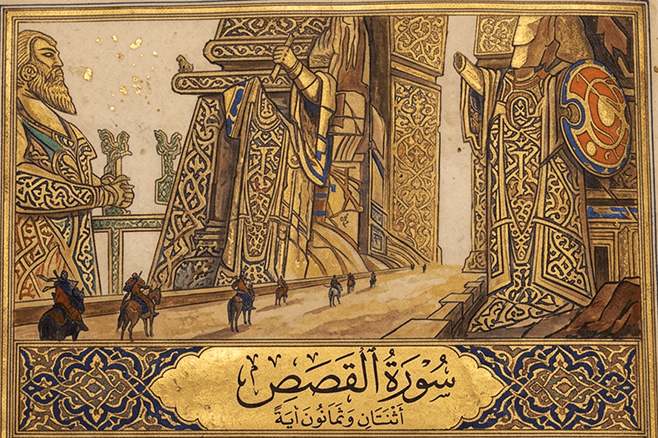 سُورَةُ ٱلْقَصَصِ
أَثْنَتَان وَثَمَانُونَ اٰيَةً